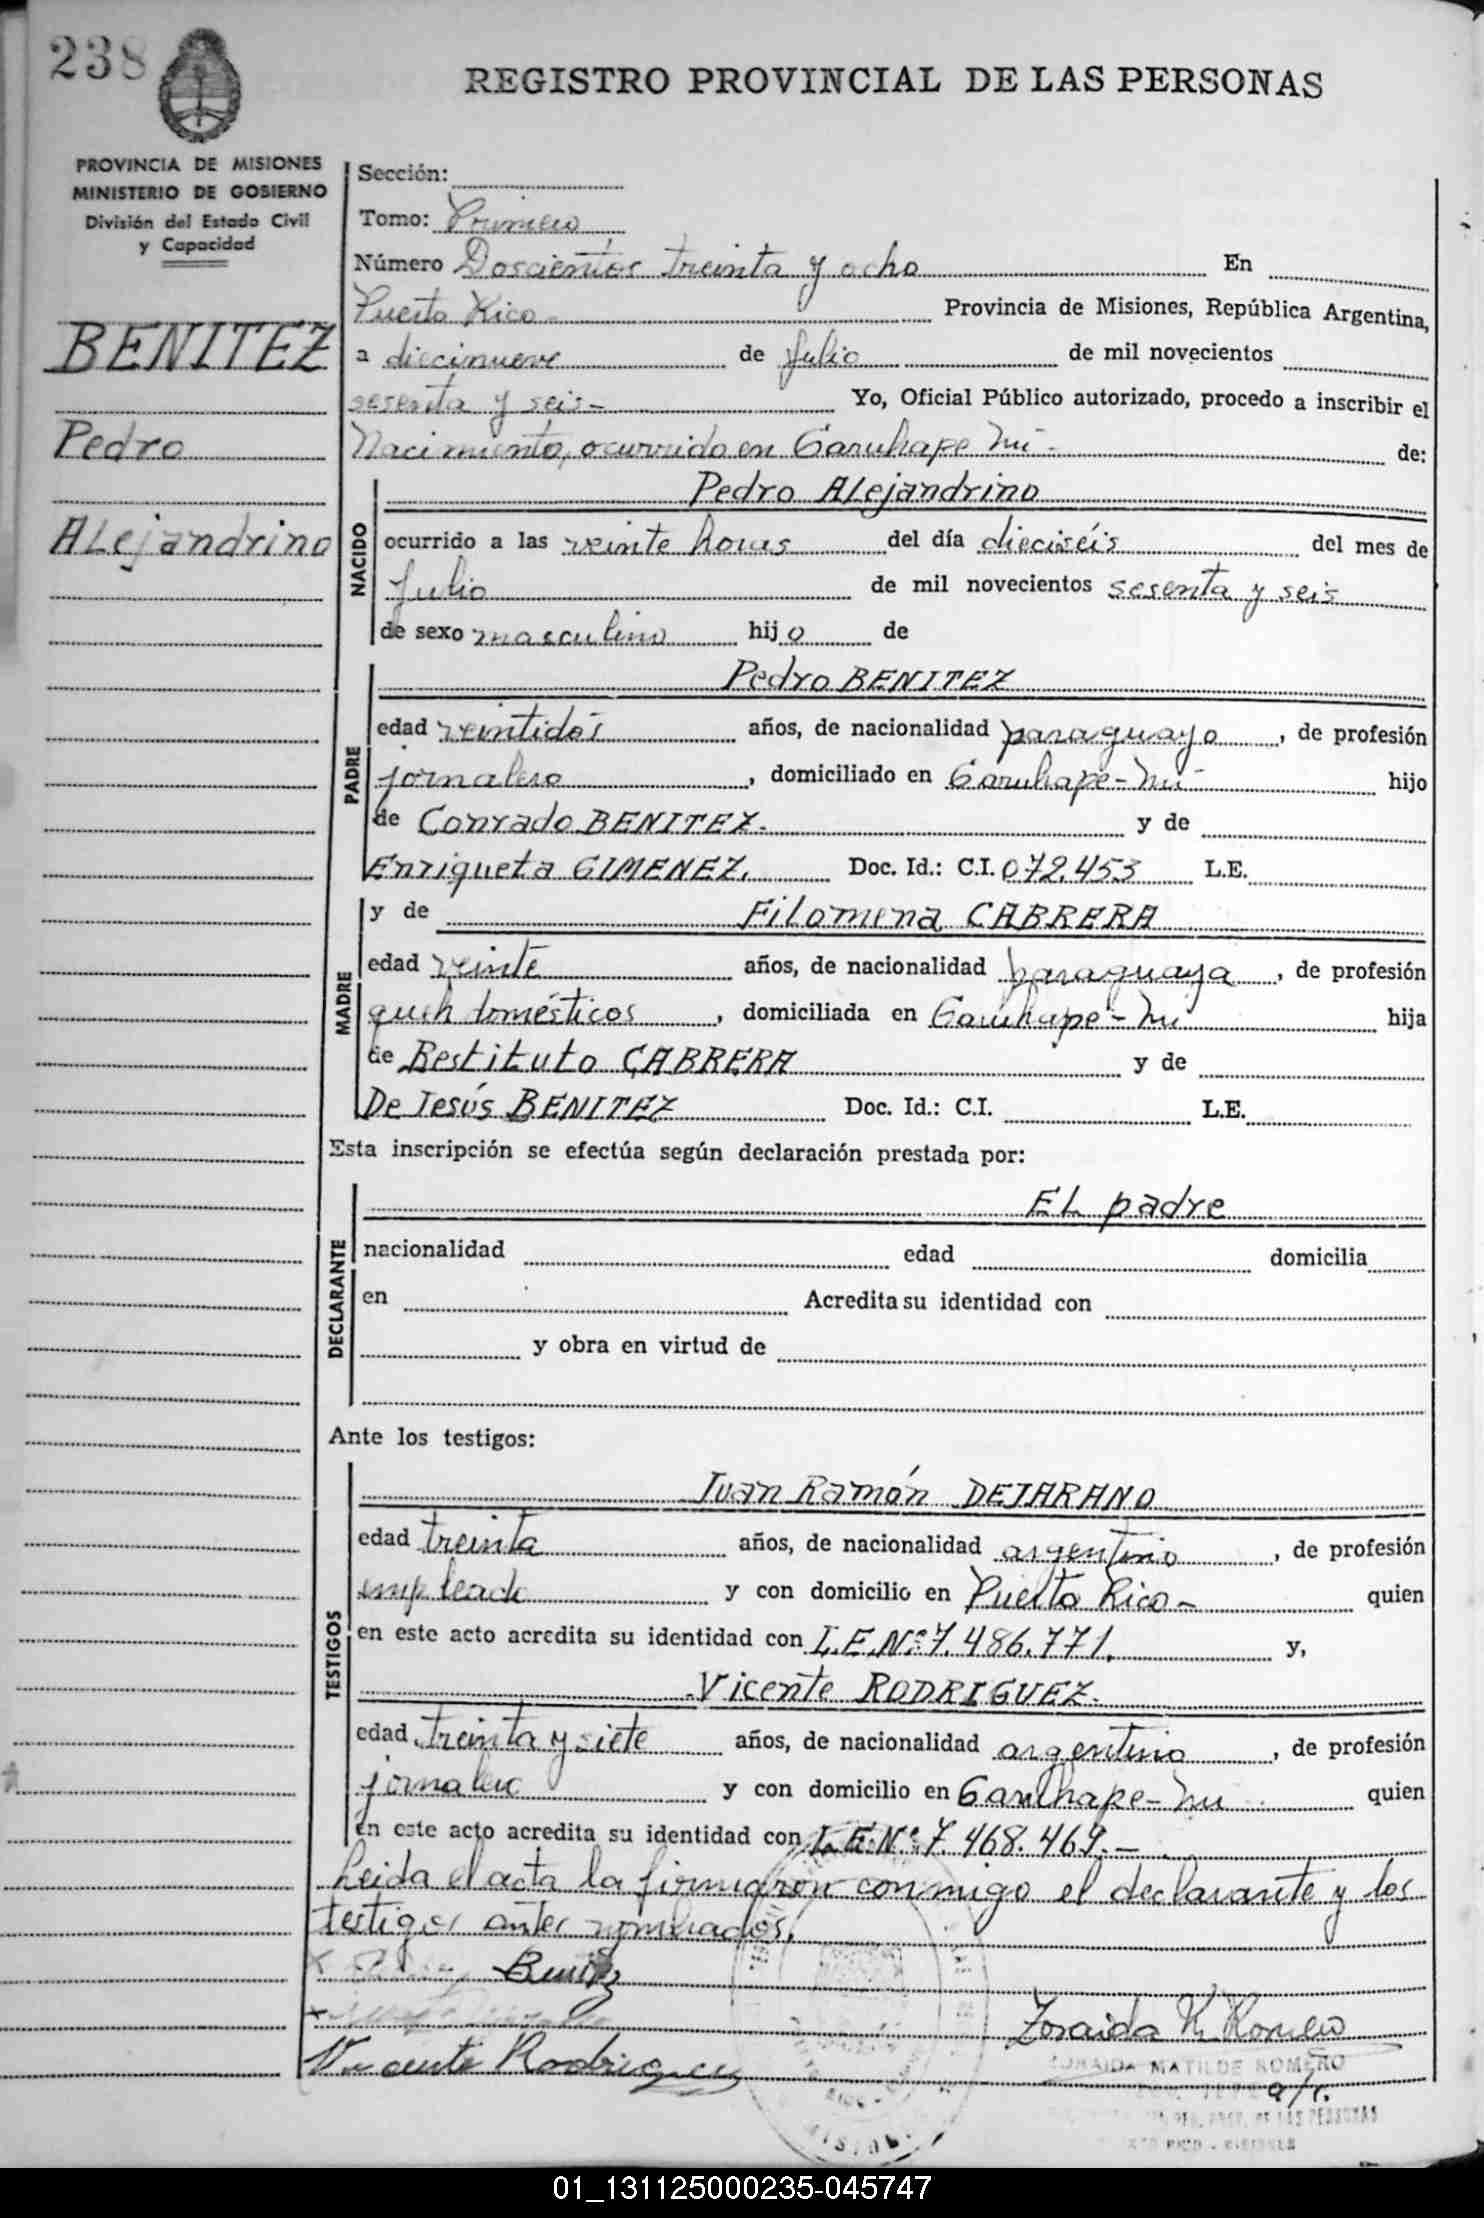 238
REGISTRO PROVINCIAL DE LAS PERSONAS
PROVINCIA DE MISIONES
MINISTERIO DE GOBIERNO
División del Estado Civil
y Capacidad
BENITEZ
Pedro
ALejandrino
Sección:
Tomo: Primero
Número Doscientos treinta y ocho En
Puerto Rico - Provincia de Misiones, República Argentina,
a diecinueve de Julio de mil novecientos
sesenta y seis- Yo, Oficial Público autorizado, procedo a inscribir el
Nacimiento, ocurrido en Garuhape Mí - de:
NACIDO
Pedro ALejandrino
ocurrido a las veinte horas del día dieciséis del mes de
Julio de mil novecientos sesenta y seis
de sexo masculino hijo de
PADRE
Pedro BENITEZ
edad veintidós años, de nacionalidad paraguayo, de profesión
jornalero, domiciliado en Garuhape-Mí- hijo
de Conrado BENITEZ. y de
Enriqueta GIMENEZ. Doc. Id.: C.I. 072.453 L.E.
MADRE
y de Filomena CABRERA
edad veinte años, de nacionalidad paraguaya, de profesión
domésticos, domiciliada en Garuhape-Mí hija
de Restituto CABRERA y de
De Jesús BENITEZ Doc. Id.: C.I. L.E.
Esta inscripción se efectúa según declaración prestada por:
DECLARANTE
EL padre
nacionalidad edad domicilia
en Acredita su identidad con
y obra en virtud de
Ante los testigos:
TESTIGOS
Juan Ramón DEJARANO
edad treinta años, de nacionalidad argentino, de profesión
empleado y con domicilio en Puerto Rico- quien
en este acto acredita su identidad con L.E.Nº 7.486.771. y,
Vicente RODRIGUEZ.
edad treinta y siete años, de nacionalidad argentino, de profesión
jornalero y con domicilio en Garuhape-Mí quien
en este acto acredita su identidad con L.E.Nº 7.468.469.-
Leida el acta la firmaron conmigo el declarante y los
testigos antes nombrados.
Benitez
Zoraida M. Romero
Vicente Rodriguez
ZORAIDA MATILDE ROMERO
a/c.
REG. PROV. DE LAS PERSONAS
PTO RICO - MISIONES
01_131125000235-045747